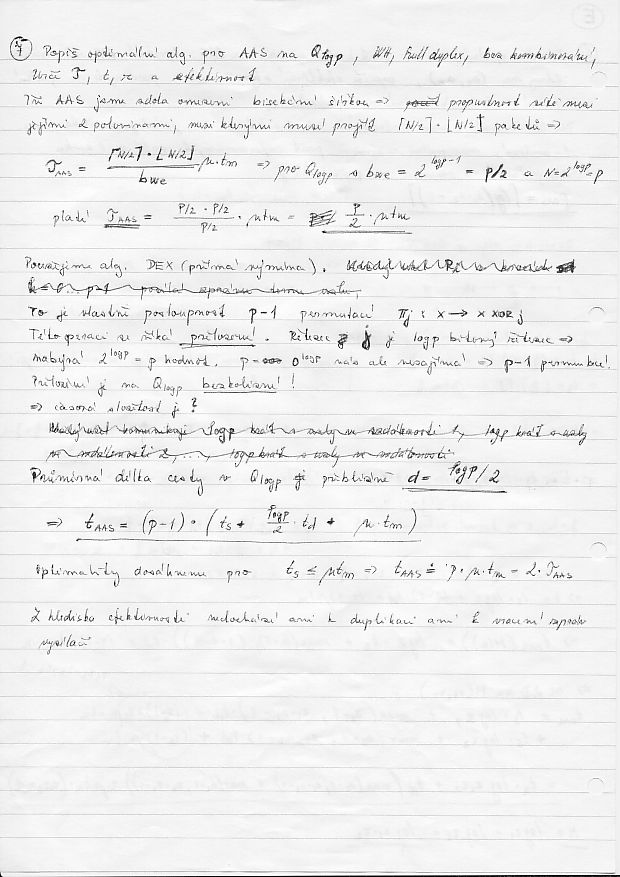 7 Popiš optimální alg. pro AAS na Q_logp, WH, Full duplex, bez kombinování,
Urči T, t, r a efektivnost
Při AAS jsme zdola omezeni bisekční šířkou => propustnost sítě mezi
jejími 2 polovinami, mezi kterými musí projít ⌈N/2⌉ · ⌊N/2⌋ paketů =>
T_AAS = (⌈N/2⌉ · ⌊N/2⌋) / bwe · μ·tm => pro Q_logp s bwe = 2^(logp-1) = P/2 a N=2^logp=P
platí T_AAS = (P/2 · P/2) / (P/2) · μtm = P/2 · μtm
Použijeme alg. DEX (přímá výměna).
To je vlastně posloupnost p-1 permutací πj : x → x xor j
Této operaci se říká přeložení. Řetězec j je logp bitový řetězec =>
nabývá 2^logp = p hodnot. 0^logp nás ale nezajímá => p-1 permutací.
Přeložení je na Q_logp bezkolizní!
=> časová složitost je?
Průměrná délka cesty v Q_logp je přibližně d = logp/2
=> t_AAS = (p-1) · (ts + logp/2 · td + μ·tm)
Optimality dosáhneme pro ts ≤ μtm => t_AAS ≐ p·μ·tm = 2·T_AAS
Z hlediska efektivnosti nedochází ani k duplikaci ani k vracení zpráv
vysílači